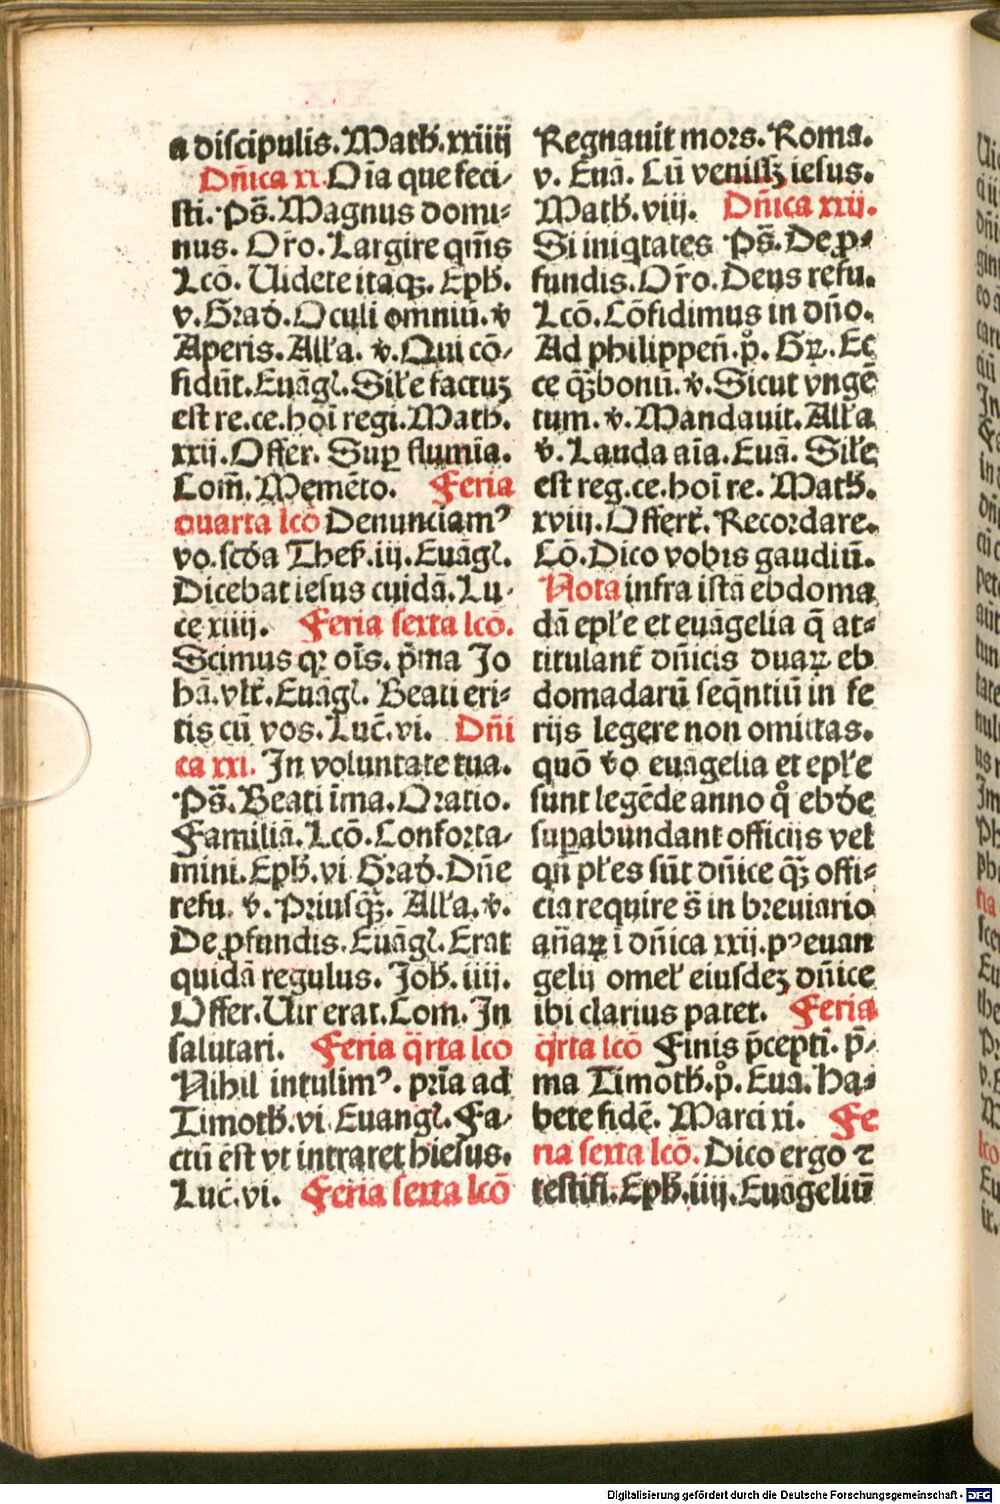 a discipulis. Math. xxiiij
Dn̄ica xx. Oīa que feci⸗
sti. Ps̄. Magnus domi⸗
nus. Or̄o. Largire qm̄s
Lcō. Uidete itaqꝫ. Eph.
v. Grad. Oculi omniū. ꝟ
Aperis. All'a. ꝟ. Qui cō⸗
fidūt. Euāgl. Sil'e factuꝫ
est re. ce. hoī regi. Math.
xxij. Offer. Suꝑ flumīa.
Com̄. Memēto. Feria
quarta lcō Denunciamꝰ
vo. scd̄a Thes̄. iij. Euāgl.
Dicebat iesus cuidā. Lu⸗
ce xiiij. Feria sexta lcō.
Scimus qꝛ oīs. p̄ma Jo
hā. vlt̄. Euāgl. Beati eri⸗
tis cū vos. Luc̄. vi. Dn̄i
ca xxi. In voluntate tua.
Ps̄. Beati īma. Oratio.
Familiā. Lcō. Conforta⸗
mini. Eph. vi Grad. Dn̄e
refu. ꝟ. Priusqꝫ̄. All'a. ꝟ.
De ꝓfundis. Euāgl. Erat
quidā regulus. Joh. iiij.
Offer. Uir erat. Com. In
salutari. Feria q̄rta lcō
Nihil intulimꝰ. pria ad
Timoth. vi. Euangl. Fa⸗
ctū est vt intraret hiesus.
Luc̄. vi. Feria sexta lcō
Regnauit mors. Roma.
v. Euā. Cū venissꝫ iesus.
Math. viii. Dn̄ica xxij.
Si iniqtates Ps̄. De ꝓ⸗
fundis. Or̄o. Deus refu.
Lcō. Cōfidimus in dn̄o.
Ad philippeñ. pͦ. Gꝝ. Ec
ce qꝫ̄ bonū. ꝟ. Sicut vngē
tum. ꝟ. Mandauit. All'a
ꝟ. Lauda aīa. Euā. Sil'e
est reg. ce. hoī re. Math.
xviij. Offert̄. Recordare.
Cō. Dico vobis gaudiū.
Nota infra istā ebdoma
dā epl'e et euāgelia q̄ at⸗
titulant̄ dn̄icis duaꝝ eb
domadarū seq̄ntiū in fe
rijs legere non omittas.
quō ꝟo euāgelia et epl'e
sunt legēde anno qͦ ebd̄e
suꝑabundant officijs vel
qn̄ pl'es sūt dn̄ice qꝫ̄ offi⸗
cia require s̄ in breuiario
añaꝝ ī dn̄ica xxij. pꝰ euan
gelij omel' eiusdeꝫ dn̄ice
ibi clarius patet. Feria
q̄rta lcō Finis p̄cepti. p̄⸗
ma Timoth. pͦ. Eua. Ha⸗
bete fidē. Marci xi. Fe
ria sexta lcō. Dico ergo ⁊
testifi. Eph. iiij. Euāgeliū
Digitalisierung gefördert durch die Deutsche Forschungsgemeinschaft - DFG